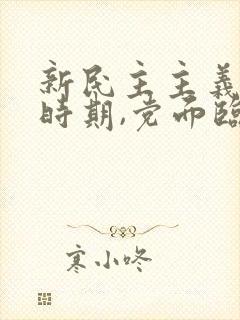 新民主主義
時期,党面臨
寒小咚